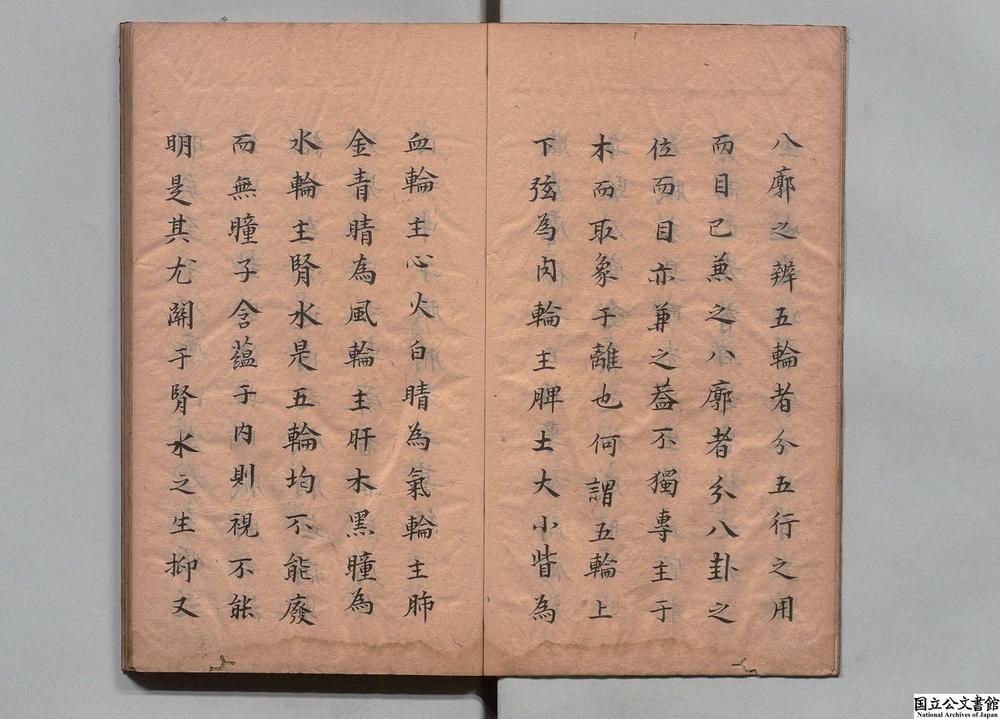 八廓之辨五輪者分五行之用
而目已兼之八廓者分八卦之
位而目亦兼之葢不獨專主于
木而取象于離也何謂五輪上
下弦為肉輪主脾土大小眥為
血輪主心火白睛為氣輪主肺
金青睛為風輪主肝木黑瞳為
水輪主腎水是五輪均不能廢
而無瞳子含蘊于內則視不能
明是其尤關于腎水之生抑又
国立公文書館
National Archives of Japan